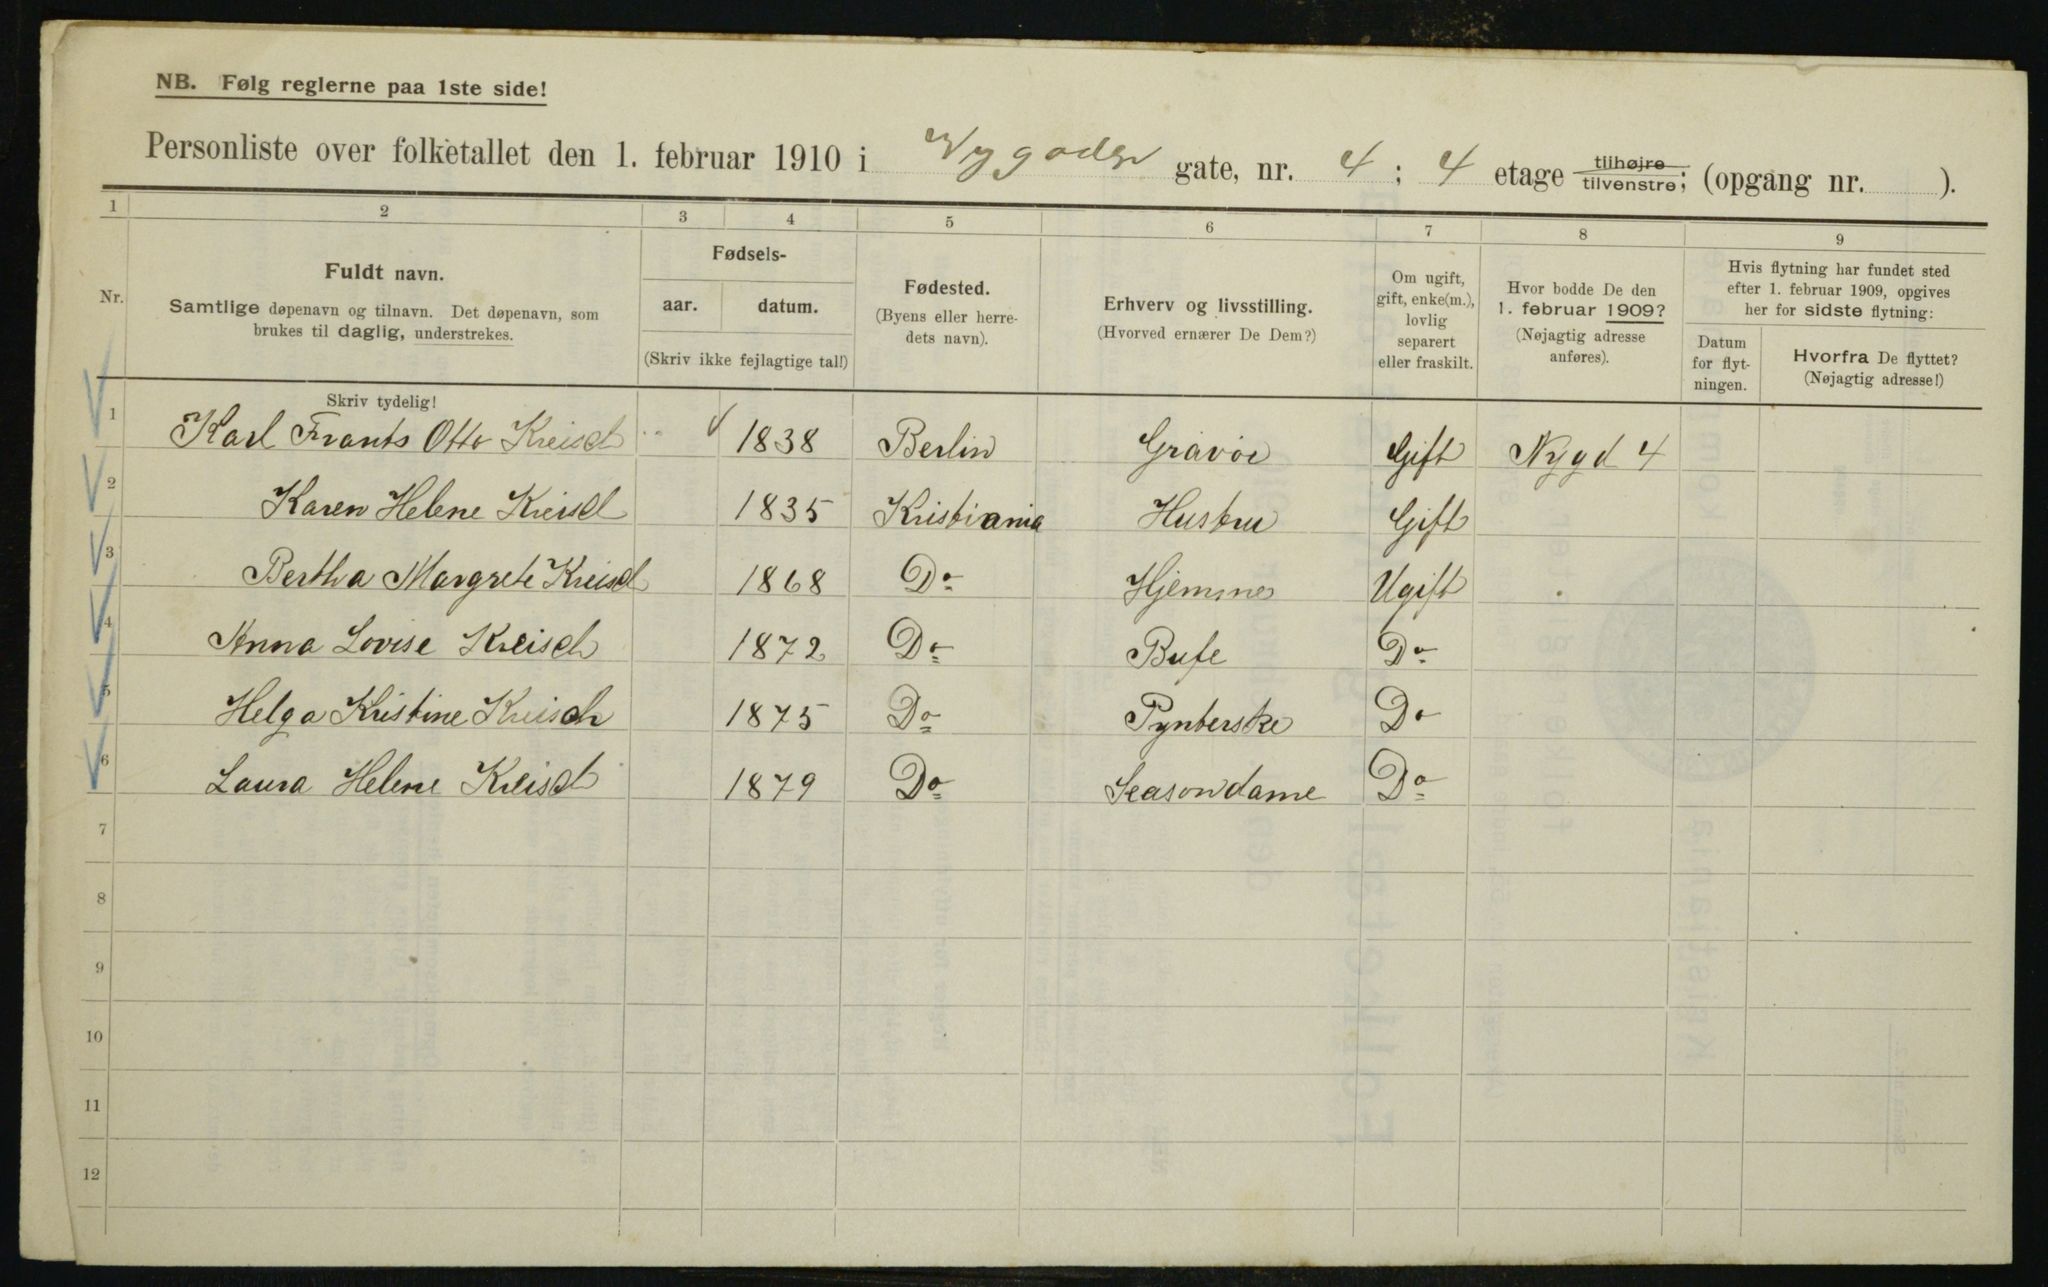 NB. Følg reglerne paa 1ste side!
Personliste over folketallet den 1. februar 1910 i Nygaden gate, nr. 4 ; 4 etage tilhøjre tilvenstre; (opgang nr. ).
1 2 3 4 5 6 7 8 9
Nr.
Fuldt navn.
Samtlige døpenavn og tilnavn. Det døpenavn, som
brukes til daglig, understrekes.
Fødsels-
aar. datum.
(Skriv ikke fejlagtige tal!)
Fødested.
(Byens eller herre-
dets navn).
Erhverv og livsstilling.
(Hvorved ernærer De Dem?)
Om ugift,
gift, enke(m.),
lovlig
separert
eller fraskilt.
Hvor bodde De den
1. februar 1909?
(Nøjagtig adresse
anføres).
Hvis flytning har fundet sted
efter 1. februar 1909, opgives
her for sidste flytning:
Datum
for flyt-
ningen.
Hvorfra De flyttet?
(Nøjagtig adresse!)
Skriv tydelig!
1 Karl Frants Otto Kreisch 1838 Berlin Gravør Gift Nygd 4
2 Karen Helene Kreisch 1835 Kristiania Hustru Gift
3 Bertha Margrete Kreisch 1868 Do Hjemme Ugift
4 Anna Lovise Kreisch 1872 Do Do
5 Helga Kristine Kreisch 1875 Do Pynterske Do
6 Laura Helene Kreisch 1879 Do Do
7
8
9
10
11
12